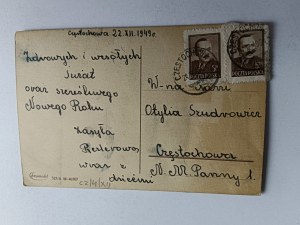 Częstochowa 22.XII.1949r.
Zdrowych i wesołych
Świąt
oraz szczęśliwego
Nowego Roku
zasyła
wraz z
dziećmi
W-na Pani
Otylia
Częstochowa
N. M. Panny 1.
POCZTA POLSKA